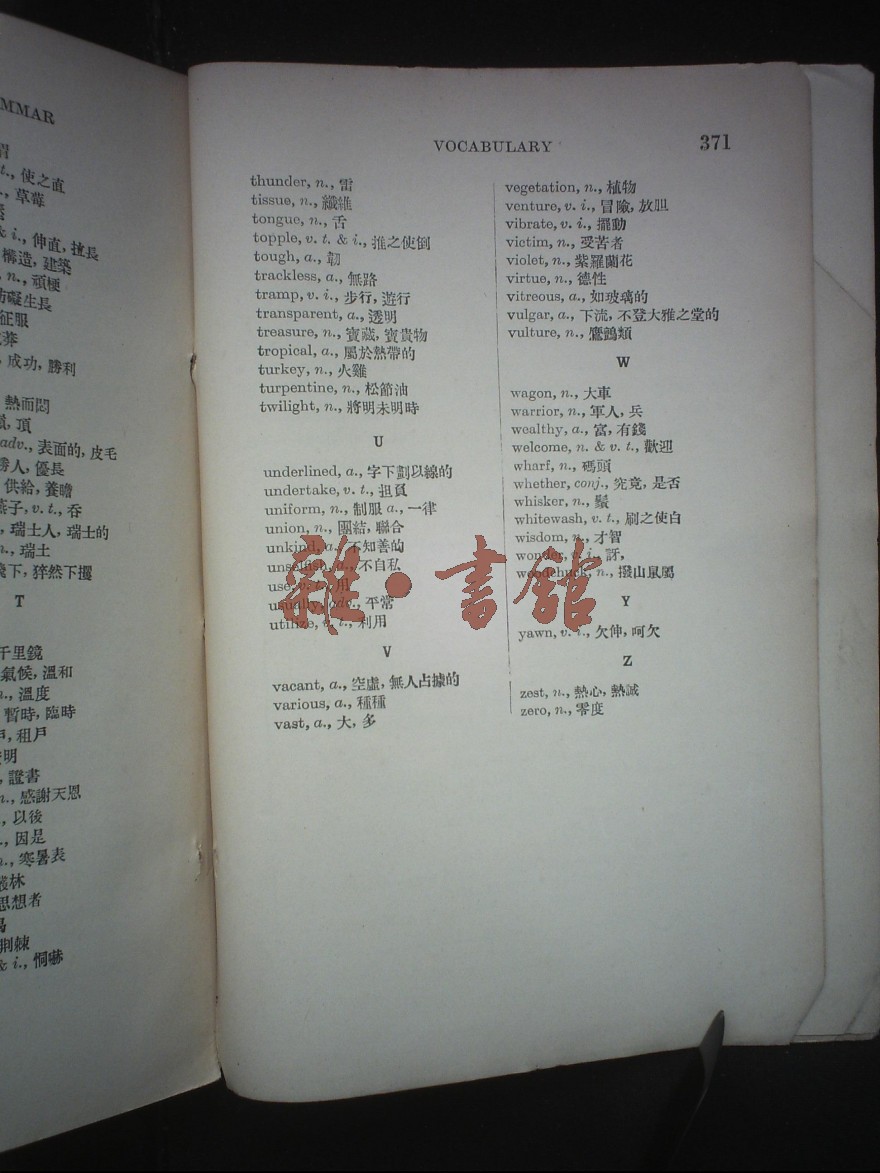 MMAR
使之直
草莓
& i., 伸直, 擅長
構造, 建築
n., 頑梗
妨礙生長
征服
成功, 勝利
熱而悶
頂
adv., 表面的, 皮毛
勝人, 優長
供給, 養瞻
燕子, v. t., 吞
瑞士人, 瑞士的
n., 瑞士
T
千里鏡
氣候, 溫和
溫度
暫時, 臨時
租戶
證明
證書
n., 感謝天恩
以後
因是
寒暑表
叢林
思想者
荆棘
& i., 恫嚇
VOCABULARY 371
thunder, n., 雷
tissue, n., 纖維
tongue, n., 舌
topple, v. t. & i., 推之使倒
tough, a., 韌
trackless, a., 無路
tramp, v. i., 步行, 遊行
transparent, a., 透明
treasure, n., 寶藏, 寶貴物
tropical, a., 屬於熱帶的
turkey, n., 火雞
turpentine, n., 松節油
twilight, n., 將明未明時
U
underlined, a., 字下劃以線的
undertake, v. t., 担負
uniform, n., 制服 a., 一律
union, n., 團結, 聯合
unkind, a., 不知善的
unselfish, a., 不自私
use, v. t., 用
usually, adv., 平常
utilize, v. t., 利用
V
vacant, a., 空虛, 無人占據的
various, a., 種種
vast, a., 大, 多
vegetation, n., 植物
venture, v. i., 冒險, 放胆
vibrate, v. i., 擺動
victim, n., 受苦者
violet, n., 紫羅蘭花
virtue, n., 德性
vitreous, a., 如玻璃的
vulgar, a., 下流, 不登大雅之堂的
vulture, n., 鷹鷂類
W
wagon, n., 大車
warrior, n., 軍人, 兵
wealthy, a., 富, 有錢
welcome, n. & v. t., 歡迎
wharf, n., 碼頭
whether, conj., 究竟, 是否
whisker, n., 鬚
whitewash, v. t., 刷之使白
wisdom, n., 才智
wonder, v. i., 訝,
woodchuck, n., 撥山鼠屬
Y
yawn, v. i., 欠伸, 呵欠
Z
zest, n., 熱心, 熱誠
zero, n., 零度
雜·書館